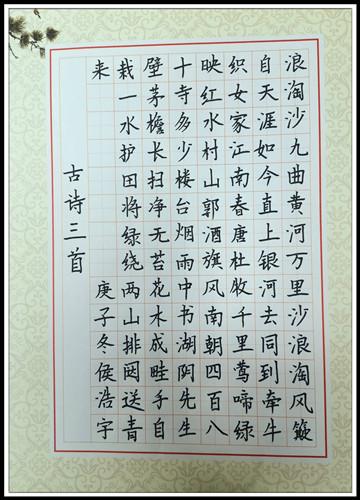 浪淘沙九曲黄河万里沙浪淘风簸
自天涯如今直上银河去同到牵牛
织女家江南春唐杜牧千里莺啼绿
映红水村山郭酒旗风南朝四百八
十寺多少楼台烟雨中书湖阴先生
壁茅檐长扫净无苔花木成畦手自
栽一水护田将绿绕两山排闼送青
来
庚子冬侯浩宇
古诗三首